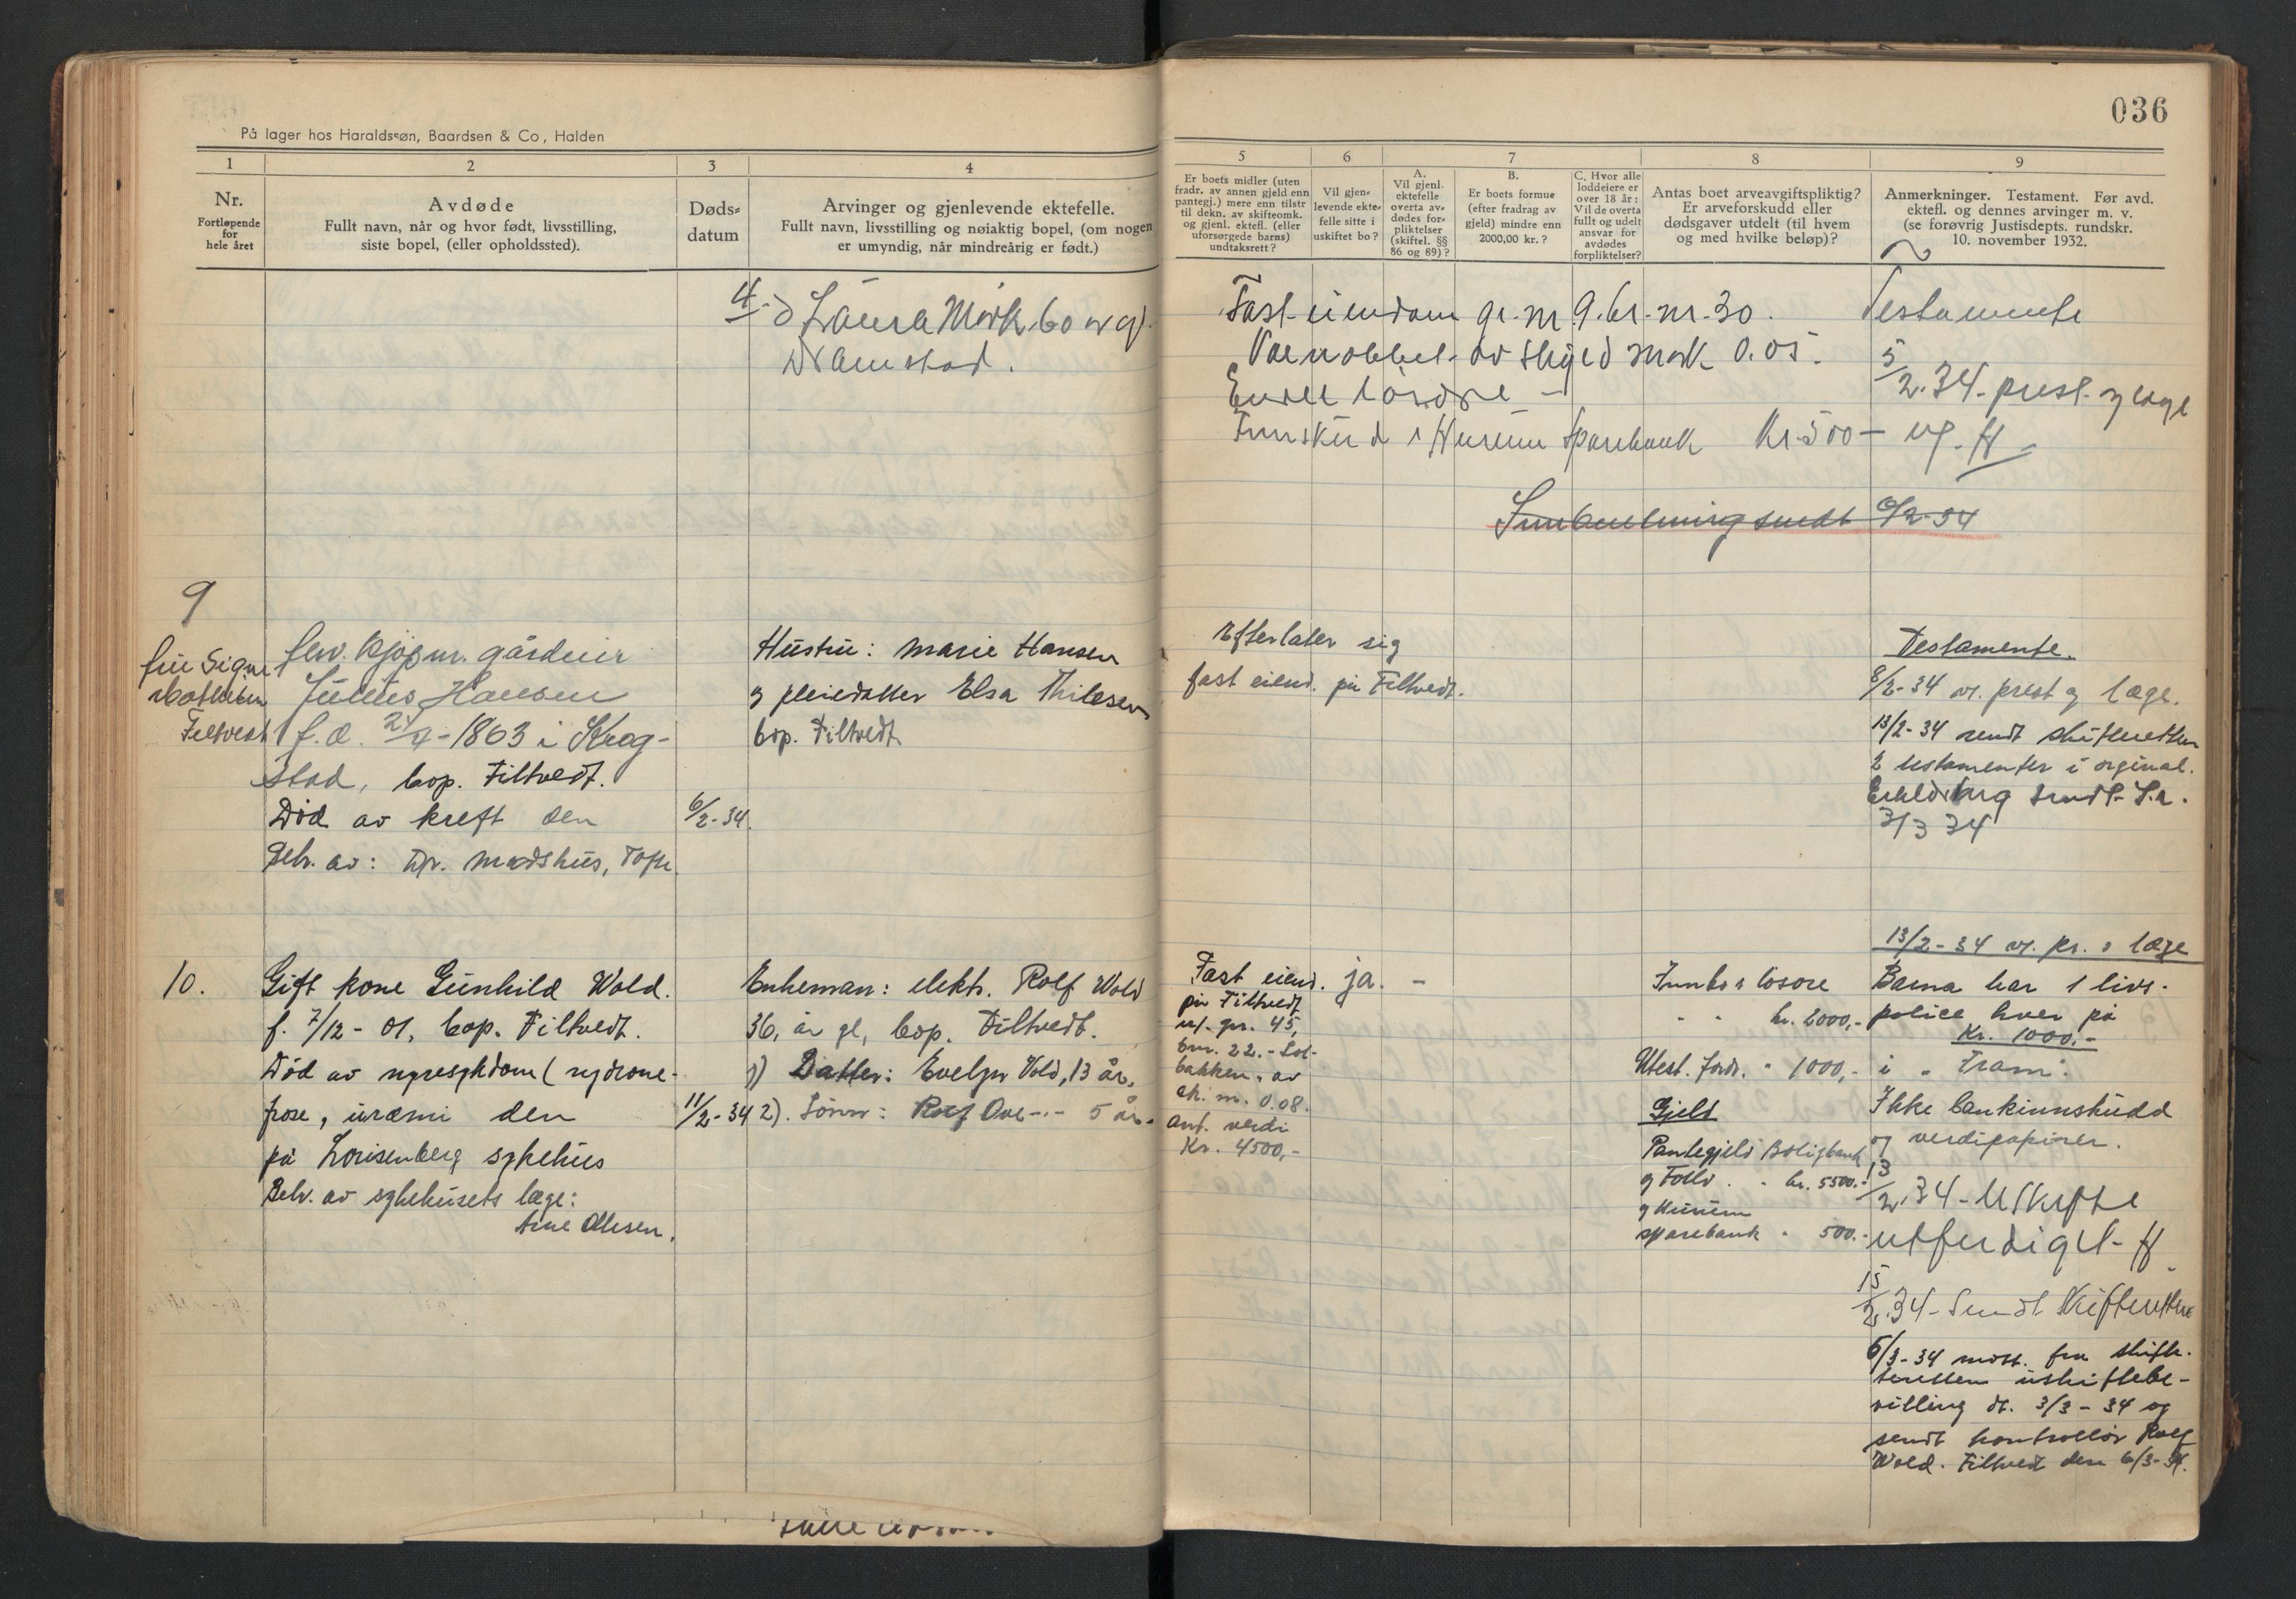 036
På lager hos Haraldssøn, Baardsen & Co, Halden
1
2
3
4
5
6
7
8
9
Nr.
Fortløpende
for
hele året
Avdøde
Fullt navn, når og hvor født, livsstilling,
siste bopel, (eller opholdssted).
Døds-
datum
Arvinger og gjenlevende ektefelle.
Fullt navn, livsstilling og nøiaktig bopel, (om nogen
er umyndig, når mindreårig er født.)
Er boets midler (uten
fradr. av annen gjeld enn
pantegj.) mere enn tilstr
til dekn. av skifteomk.
og gjenl. ektefl. (eller
uforsørgede barns)
undtaksrett?
Vil gjen-
levende ekte-
felle sitte i
uskiftet bo?
A.
Vil gjenl.
ektefelle
overta av-
dødes for-
pliktelser
(skiftel. §§
86 og 89)?
B.
Er boets formue
(efter fradrag av
gjeld) mindre enn
2000,00 kr.?
C. Hvor alle
loddeiere er
over 18 år:
Vil de overta
fullt og udelt
ansvar for
avdødes
forpliktelser?
Antas boet arveavgiftspliktig?
Er arveforskudd eller
dødsgaver utdelt (til hvem
og med hvilke beløp)?
Anmerkninger. Testament. Før avd.
ektefl. og dennes arvinger m. v.
(se forøvrig Justisdepts. rundskr.
10. november 1932.
4
Laura Mørk
Fast eiendom gr. nr 9. br. nr. 30.
av skyld mark 0.05.
Innskud i Hurum Sparebank Kr. 500 —
Testamente
5/2. 34. prest og læge
sendt
9
Julius Hansen
f. d. 1863 i Krog-
stad, bop. Filtvedt.
Død av kreft den
Beh. av: Dr. Madshus, Tofte.
6/2-34.
Hustru: Marie Hansen
og pleiedatter Elsa
bop. Filtvedt
Efterlater sig
fast eiend. på Filtvedt.
Testamente.
8/2-34 prest og læge.
13/2-34 sendt skifteretten
2 testamenter i orginal.
3/3 34
10.
Gift kone Gunhild Wold.
f. 7/12-01, bop. Filtvedt.
Død av nyresykdom (
uræmi den
på Lovisenberg sykehus
Beh. av sykehusets læge:
11/2-34
Enkeman: elektr. Rolf Wold
36, år gl, bop. Filtvedt.
1) Datter: Evelyn Wold, 13 år.
2). Sønn: Rolf Ove -"- 5 år.
Fast eiend.
på Filtvedt
gr. 45,
bnr. 22.- Sol-
bakken, av
sk. m. 0.08.
ant. verdi
Kr. 4500,-
ja. -
Innbo & løsøre
" " kr. 2000,-
Utest. fordr. " 1000,-
Gjeld
Pantegjeld Boligbank
kr. 5500.-
og Hurum
sparebank " 500.-
13/2-34 pr. & læge
Barna har 1 livs-
police hver på
Kr. 1000.-
i "Fram".
Ikke bankinnskudd
og verdipapirer.
13/2. 34 -
utferdiget -
15/2. 34 - Sendt Skifteretten
6/3-34 mott. fra skifte-
retten uskiftebe-
villing dt. 3/3-34 og
sendt kontrollør Rolf
Wold. Filtvedt den 6/3-34.